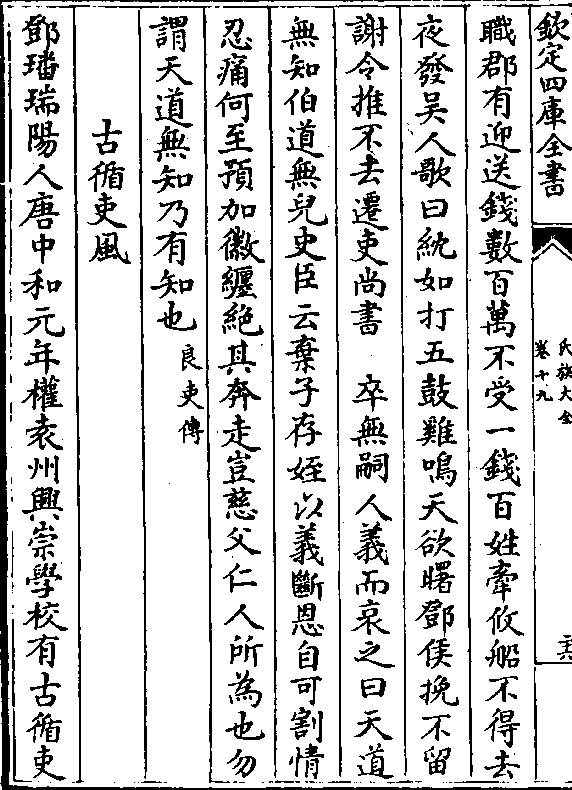 欽定四庫全書
氏族大全
卷十九
二六
職郡有迎送錢數百萬不受一錢百姓牽攸船不得去
夜發吳人歌曰紞如打五鼓雞鳴天欲曙鄧侯挽不留
謝令推不去遷吏尚書 卒無嗣人義而哀之曰天道
無知伯道無兒史臣云棄子存姪以義斷恩自可割情
忍痛何至預加徽纆絶其奔走豈慈父仁人所為也勿
謂天道無知乃有知也良吏傳
古循吏風
鄧璠瑞陽人唐中和元年權袁州興崇學校有古循吏